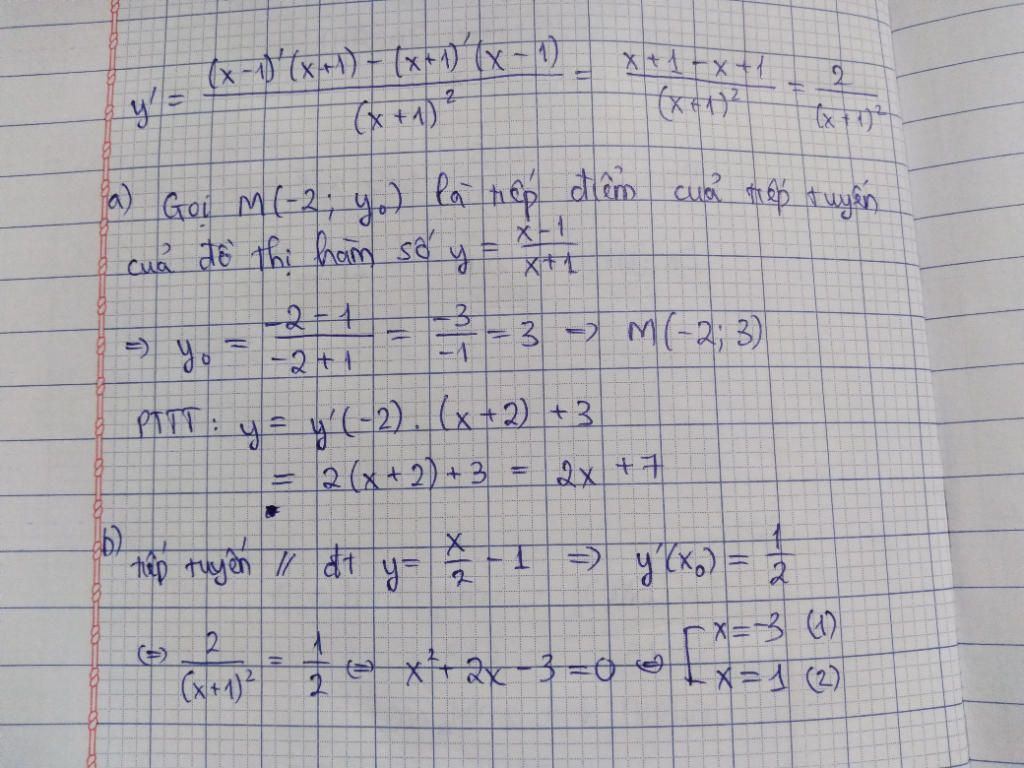 y' = \frac{(x-1)'(x+1) - (x+1)'(x-1)}{(x+1)^2} = \frac{x+1-x+1}{(x+1)^2} = \frac{2}{(x+1)^2}
a) Gọi M(-2; y₀) là tiếp điểm cuả tiếp tuyến
cuả đồ thị hàm số y = \frac{x-1}{x+1}
⇒ y₀ = \frac{-2-1}{-2+1} = \frac{-3}{-1} = 3 ⇒ M(-2; 3)
PTTT: y = y'(-2). (x+2) + 3
= 2(x+2)+3 = 2x + 7
b) tiếp tuyến // đt y = \frac{x}{2} - 1 ⇒ y'(x₀) = \frac{1}{2}
⇔ \frac{2}{(x+1)^2} = \frac{1}{2} ⇔ x² + 2x - 3 = 0 ⇔ [ x = -3 (1)
x = 1 (2)